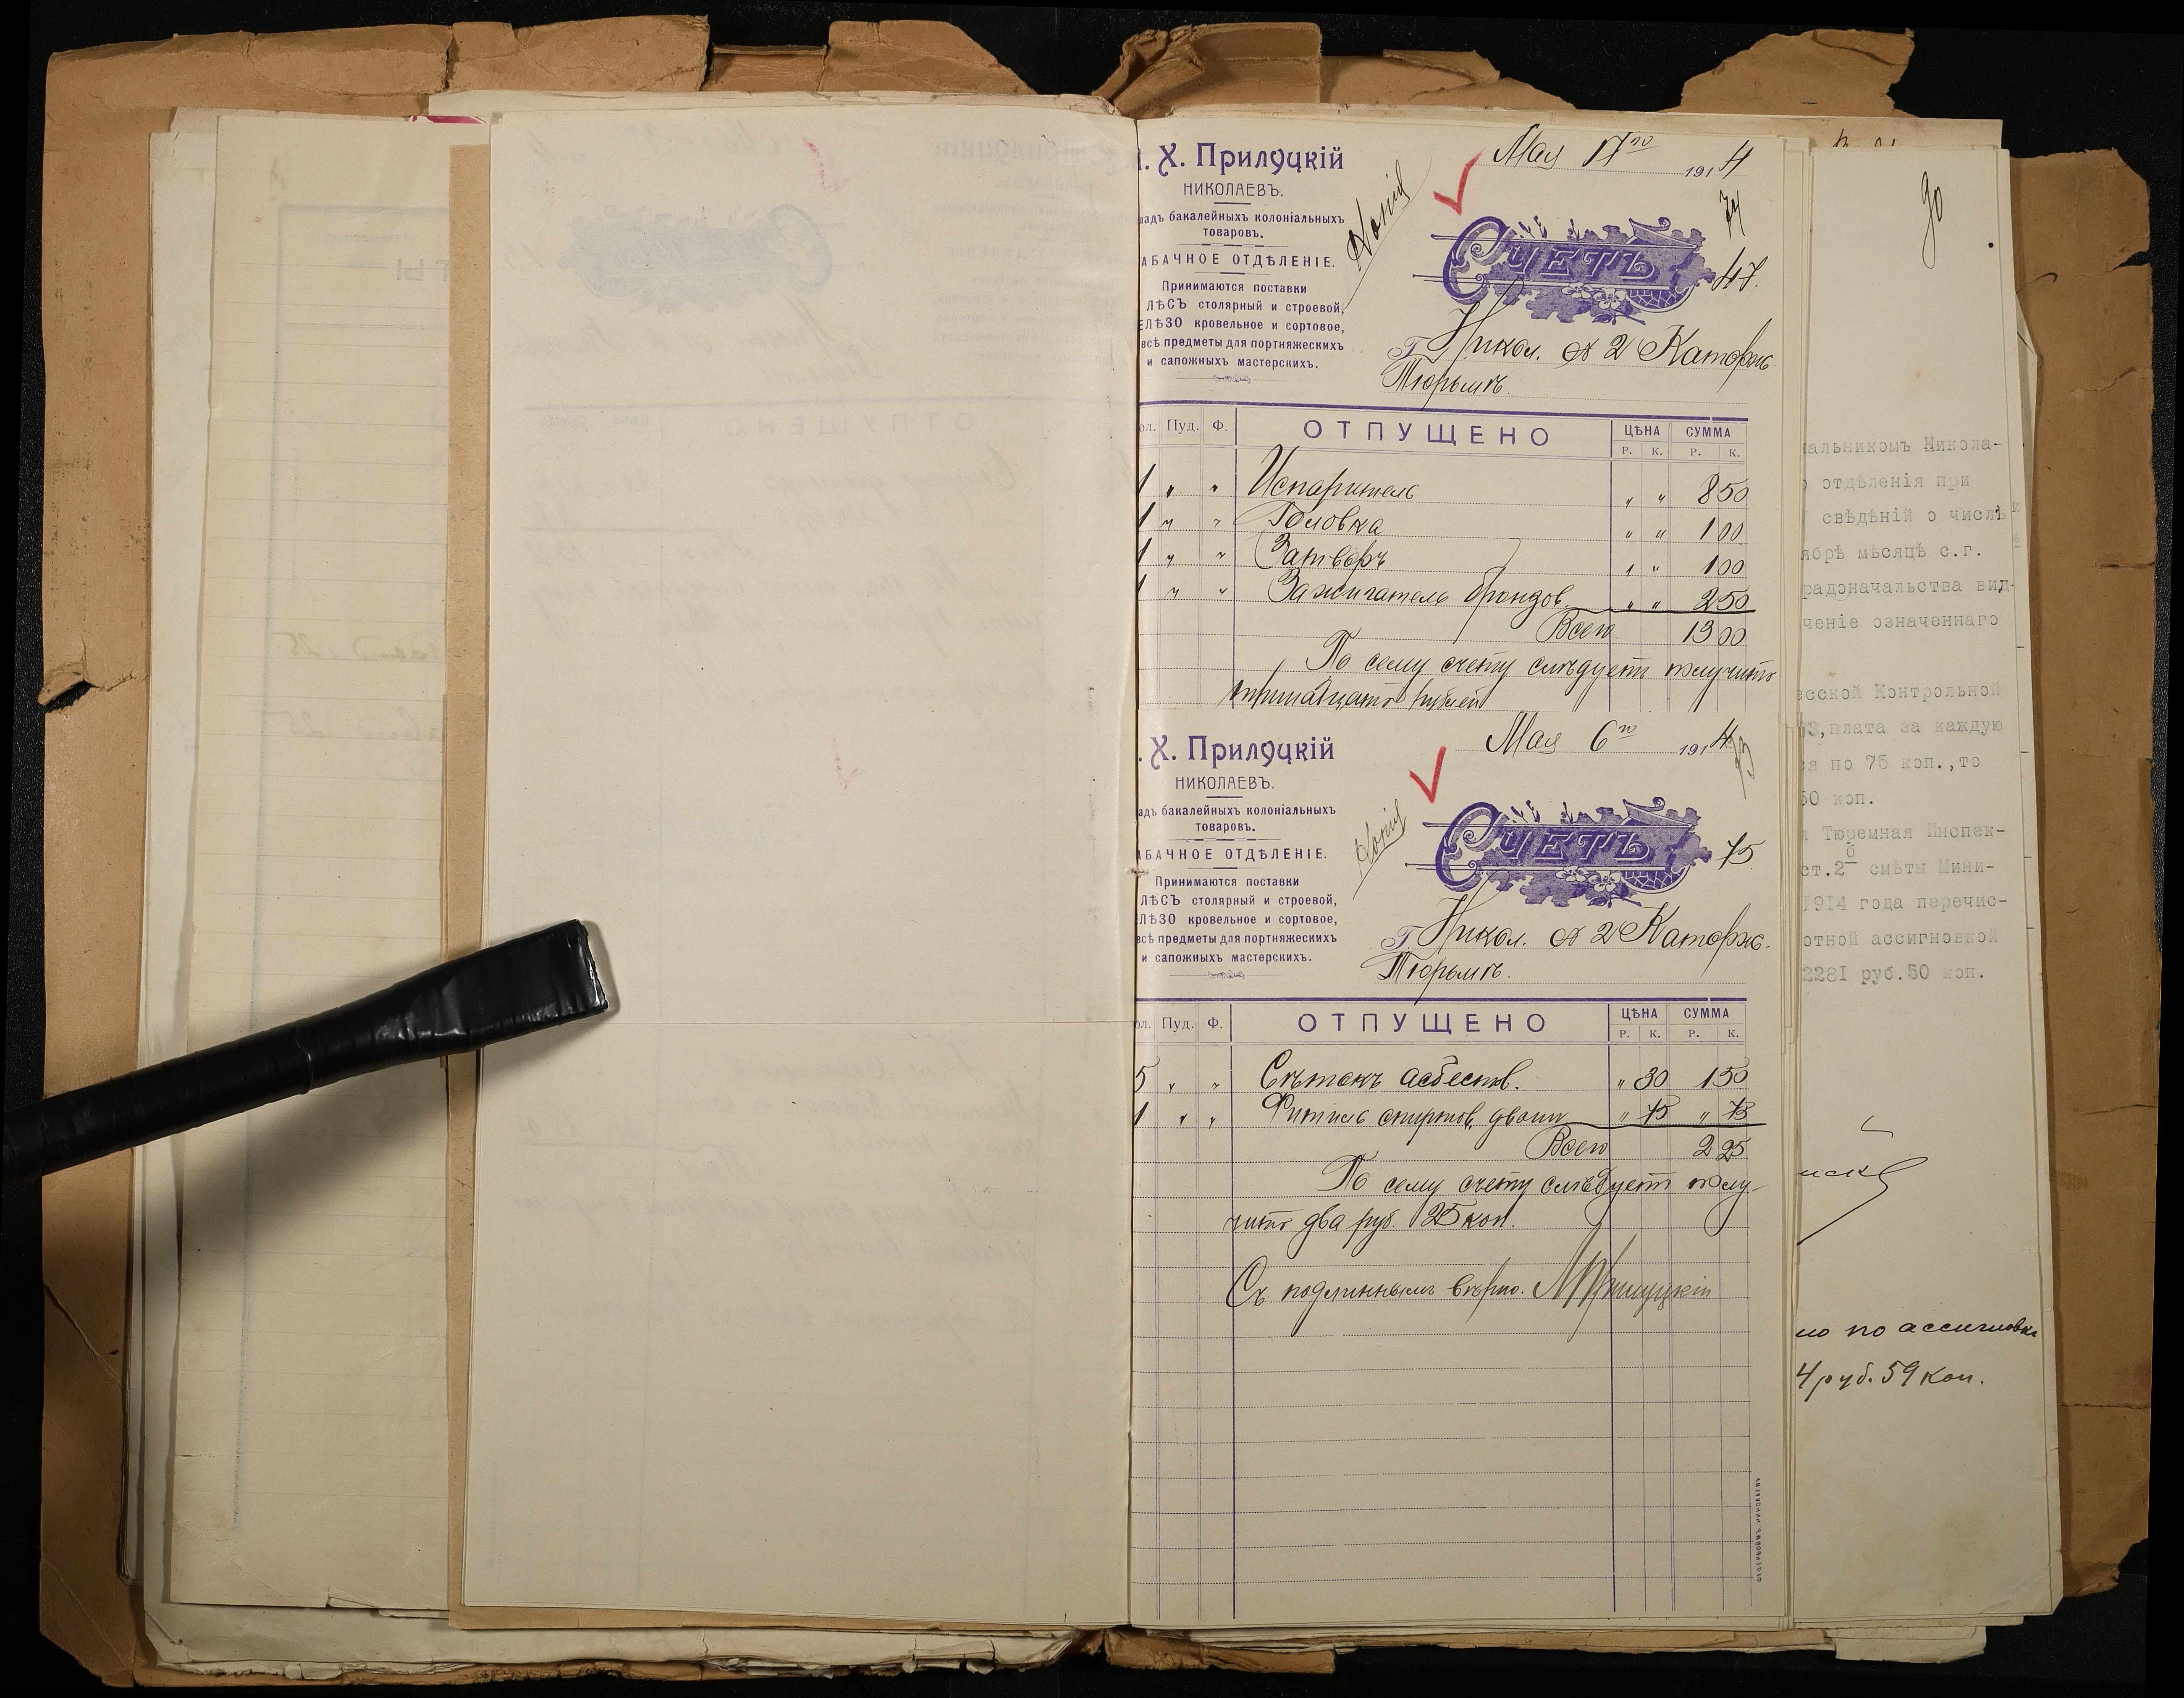 . Х. Прилуцкій
НИКОЛАЕВЪ.
ладъ бакалейныхъ колоніальныхъ
товаровъ.
АБАЧНОЕ ОТДѢЛЕНІЕ.
Принимаются поставки
ЛѢСЪ столярный и строевой,
ЕЛѢЗО кровельное и сортовое,
всѣ предметы для портняжескихъ
и сапожныхъ мастерскихъ.
Копія
Мая 17го 1914
74
СЧЕТЪ 47.
Г. Никол. в 2 Каторж.
Тюрьмѣ.
ол. Пуд. Ф. ОТПУЩЕНО ЦѢНА СУММА
Р. К. Р. К.
1 " " Испаритель " " 8 50
1 " " Головка " " 1 00
1 " " Затворъ " " 1 00
1 " " Зажигатель бронзов. " " 2 50
Всего 13 00
По сему счету слѣдуетъ получить
тринадцать рублей
. Х. Прилуцкій
НИКОЛАЕВЪ.
адъ бакалейныхъ колоніальныхъ
товаровъ.
АБАЧНОЕ ОТДѢЛЕНІЕ.
Принимаются поставки
ЛѢСЪ столярный и строевой,
ЛѢЗО кровельное и сортовое,
всѣ предметы для портняжескихъ
и сапожныхъ мастерскихъ.
Копія
Мая 6го 1914
СЧЕТЪ 75
Г. Никол. в 2 Каторж.
Тюрьмѣ.
ол. Пуд. Ф. ОТПУЩЕНО ЦѢНА СУММА
Р. К. Р. К.
5 " " Сѣтокъ асбестов. " 30 1 50
1 " " Фитиль спиртов. двойн " 75 " 75
Всего 2 25
По сему счету слѣдуетъ полу-
чить два руб. 25 коп.
Съ подлиннымъ вѣрно. МПрилуцкій
90
чальникомъ Никола-
отдѣленія при
свѣдѣній о числѣ
ябрѣ мѣсяцѣ с.г.
радоначальства вид-
ченіе означеннаго
есской Контрольной
3, плата за каждую
ся по 75 коп.,то
50 коп.
Тюремная Инспек-
ст.2б смѣты Мини-
1914 года перечис-
отной ассигновкой
2281 руб.50 коп.
но по ассигновк
4 руб. 59 коп.